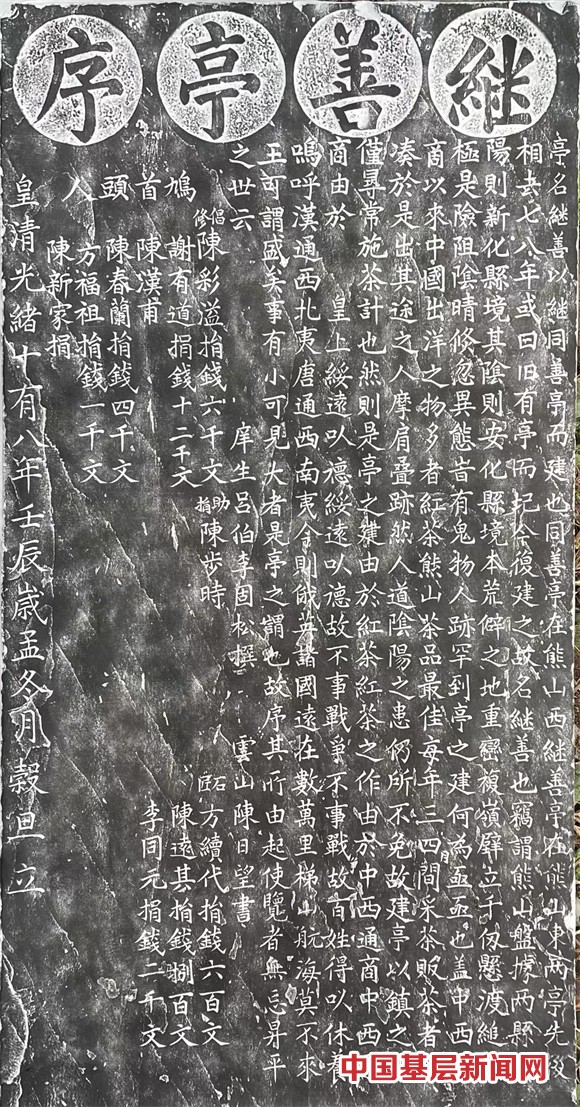 継善亭序
亭名継善以継同善亭而建也同善亭在熊山西継善亭在熊山東两亭先後
相去七八年或曰旧有亭而圮今復建之故名継善也竊謂熊山盤據两縣
陽則新化縣境其陰則安化縣境本荒僻之地重巒複嶺壁立千仞懸渡縋
極是險阻陰晴倏忽異態昔有鬼物人跡罕到亭之建何為亟亟也盖中西
商以來中國出洋之物多者紅茶熊山茶品最佳每年三四間采茶販茶者
凑於是出其途之人摩肩疊跡然人道陰陽之患仍所不免故建亭以鎮之
僅尋常施茶計也然則是亭之建由於紅茶紅茶之作由於中西通商中西
商由於 皇上綏遠以德綏遠以德故不事戰爭不事戰故百姓得以休養
嗚呼漢通西北夷唐通西南夷今則俄英諸國遠在數萬里梯山航海莫不來
王可謂盛矣事有小可見大者是亭之謂也故序其所由起使覽者無忘昇平
之世云 庠生呂伯李固松撰 雲山陳日望書
倡修陳彩溢捐錢六千文 助捐陳步時 石匠方續代捐錢六百文
鳩 謝有道捐錢十二千文 陳遠其捐錢捌百文
首 陳漢甫 李同元捐錢二千文
頭 陳春蘭捐錢四千文
人 方福祖捐錢一千文
陳新家捐
皇清光緒十有八年壬辰歲孟冬月穀旦立
中国基层新闻网